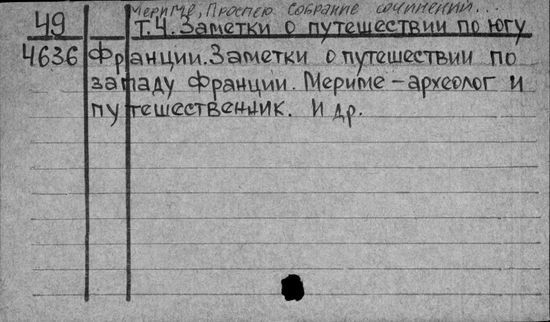 Мериме, Проспер. Собрание сочинений...
49 Т.4. Заметки о путешествии по югу
4636 Франции. Заметки о путешествии по
западу Франции. Мериме - археолог и
путешественник. И др.